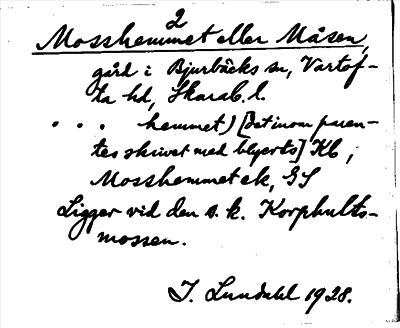 2
Mosshemmet eller Måsen,
gård i Bjurbäcks sn, Vartof-
ta hd, Skarab. l.
. . . hemmet) [det inom paren-
tes skrivet med blyerts] Kb,
Mosshemmet ek, GS
Ligger vid den s. k. Korphults-
mossen.
J. Lundahl 1928.